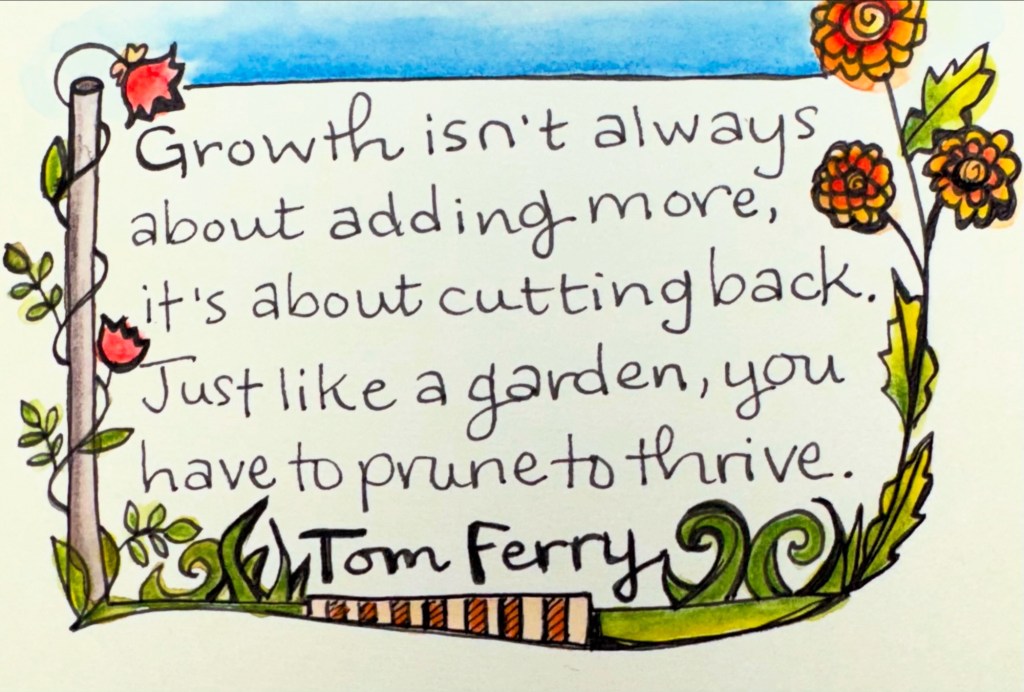 Growth isn't always
about adding more,
it's about cutting back.
Just like a garden, you
have to prune to thrive.
Tom Ferry